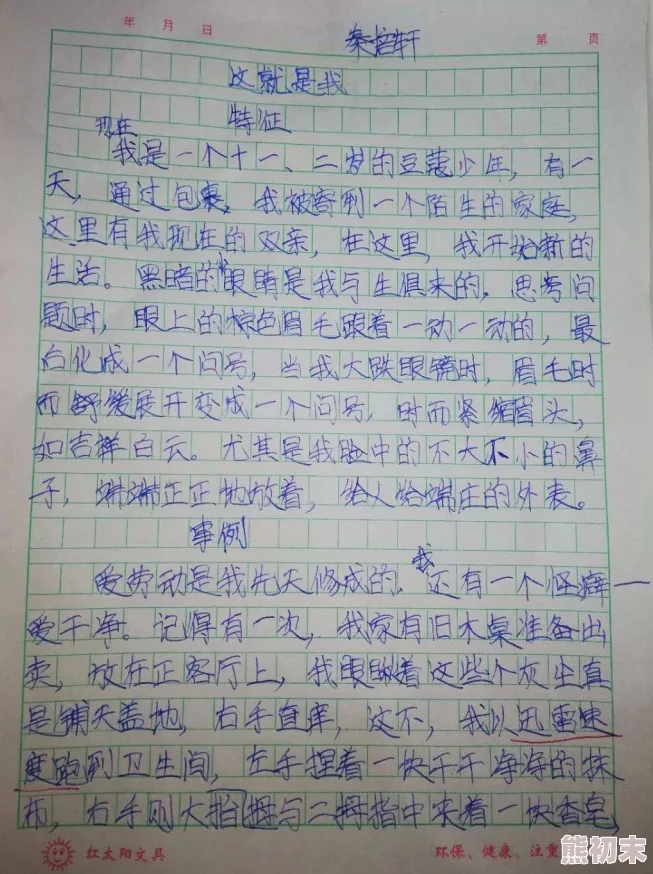 年 月 日 第 页
轩
这就是我
特征
现在
我是一个十一、二岁的豆蔻少年，有一
天，通过包裹，我被寄到一个陌生的家庭，
这里有我现在的双亲，在这里，我开始新的
生活。黑暗的眼睛是我与生俱来的，思考问
题时，眼上的棕色眉毛跟着一动一动的，最
后化成一个问号，当我大跌眼镜时，眉毛时
而舒缓展开变成一个问号，时而紧缩眉头，
如吉祥白云。尤其是我脸中的不大不小的鼻
子，端端正正地放着，给人给端庄的外表。
事例
我
爱劳动是我先天修成的，还有一个怪癖一
爱干净。记得有一次，我家有旧木桌准备出
卖，放在正客厅上，我眼瞅着这些个灰尘直
是铺天盖地，右手直痒，这不，我以迅雷速
度跑到卫生间，左手捏着一快干干净净的抹
布，右手则大抬拇与二拇指中夹着一快香皂，
红太阳文具 环保、健康、注重
熊初末